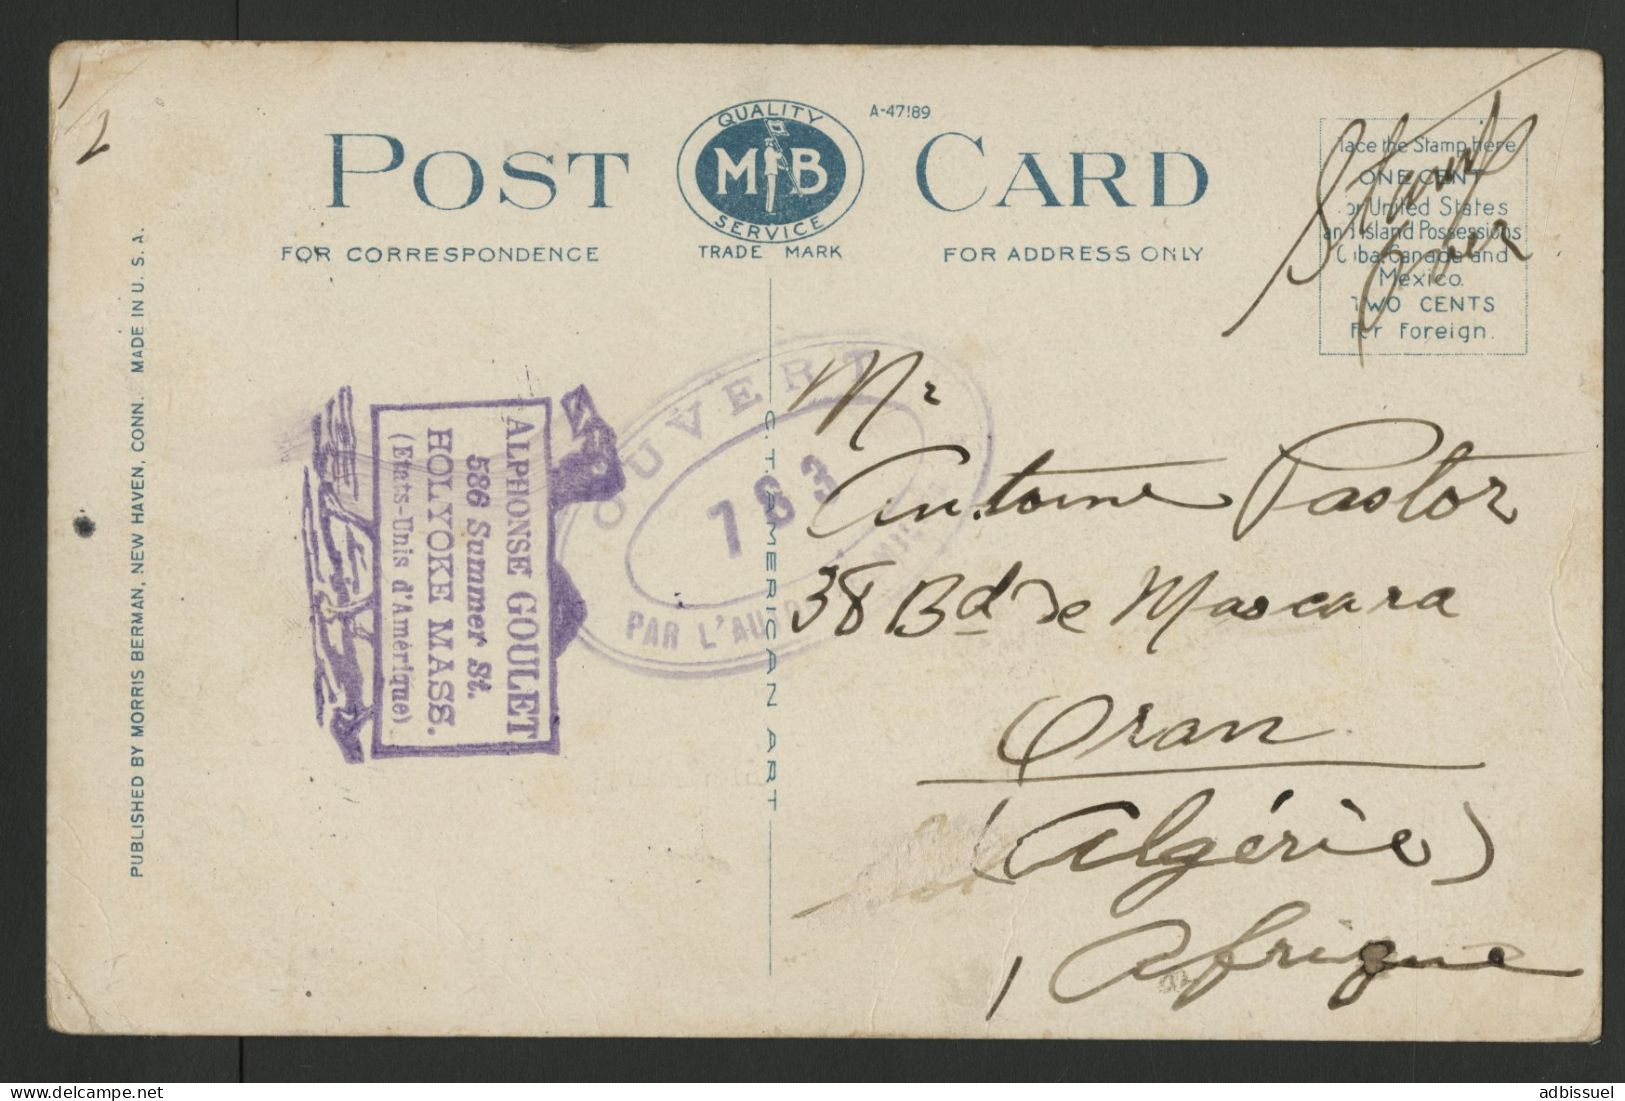 2
POST CARD
QUALITY
MB
SERVICE
TRADE MARK
A-47189
FOR CORRESPONDENCE
FOR ADDRESS ONLY
Place the Stamp here
ONE CENT
For United States
and Island Possessions
Cuba, Canada and
Mexico.
TWO CENTS
For Foreign.
Stamp
over
PUBLISHED BY MORRIS BERMAN, NEW HAVEN, CONN. MADE IN U. S. A.
C. T. AMERICAN ART
ALPHONSE GOULET
586 Summer St.
HOLYOKE MASS.
(Etats-Unis d'Amérique)
OUVERT
763
PAR L'AU
Mr
Antoine Pastor
38 Bd de Mascara
Oran
(Algérie)
Afrique
adbissuel